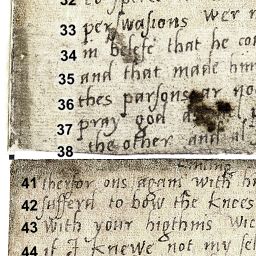 32
33 perswasions wer
34 in belefe that he co
35 and that made him
36 thes parsons ar no
37 pray god
38 the other and al
41 therfor ons again with h
42 sufferd to bow the knees
43 With your highnis Wic
44 if I knewe not my sel